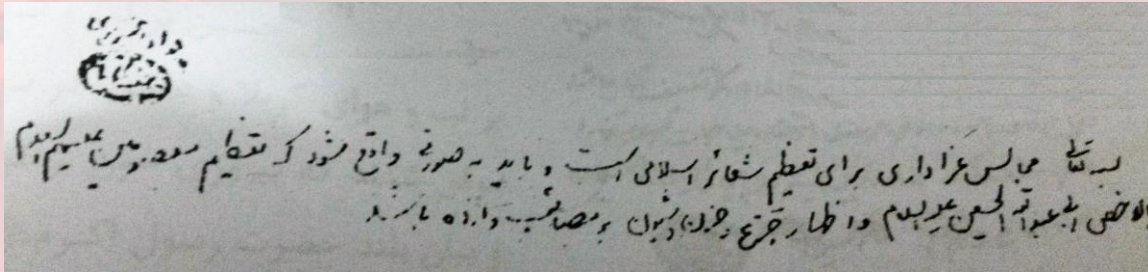 بسمه تعالی مجالس عزاداری برای تعظیم شعائر اسلامی است و باید به صورتی واقع شود که تعظیم معصومین علیهم السلام
بالاخص ابی عبدالله الحسین علیه السلام و اظهار تفجع و حزن و شیون بر مصائب وارده باشد